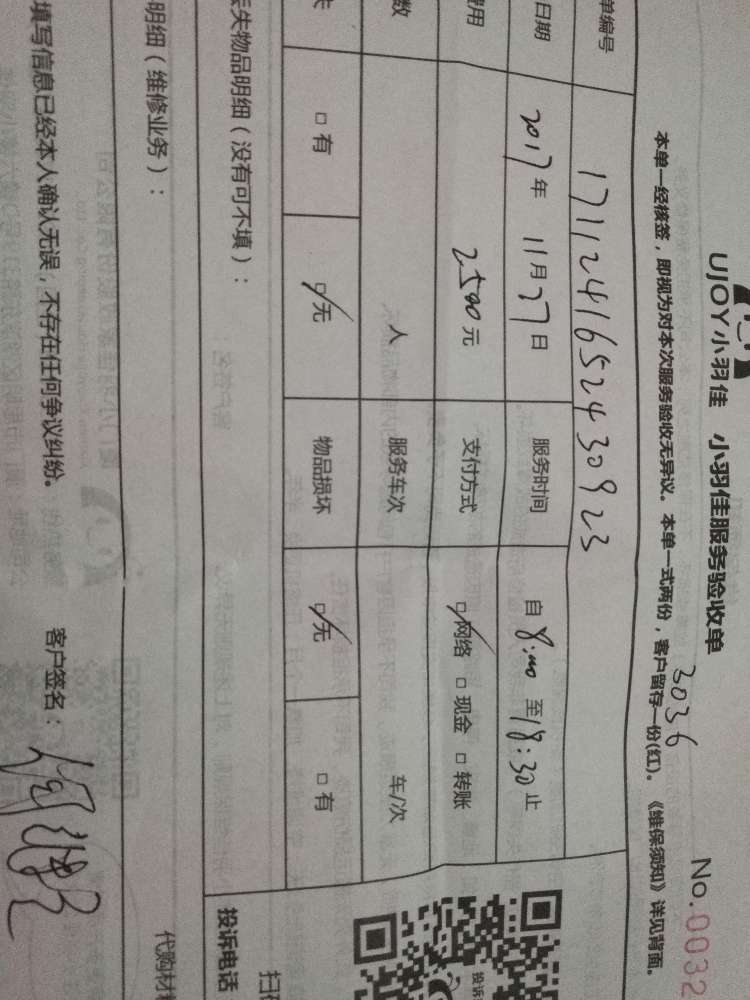 UJOY小羽佳 小羽佳服务验收单
No.0032
3036
本单一经核签，即视为对本次服务验收无异议。本单一式两份，客户留存一份(红)。《维保须知》详见背面。
单编号 17112416524430923
日期 2017年 11月27日 服务时间 自 8:00 至 18:30 止
费用 2500元 支付方式 网络 现金 转账
数 人 服务车次 车/次
失 有 无 物品损坏 无 有
丢失物品明细（没有可不填）：
投诉电话
明细（维修业务）：
填写信息已经本人确认无误，不存在任何争议纠纷。 客户签名：